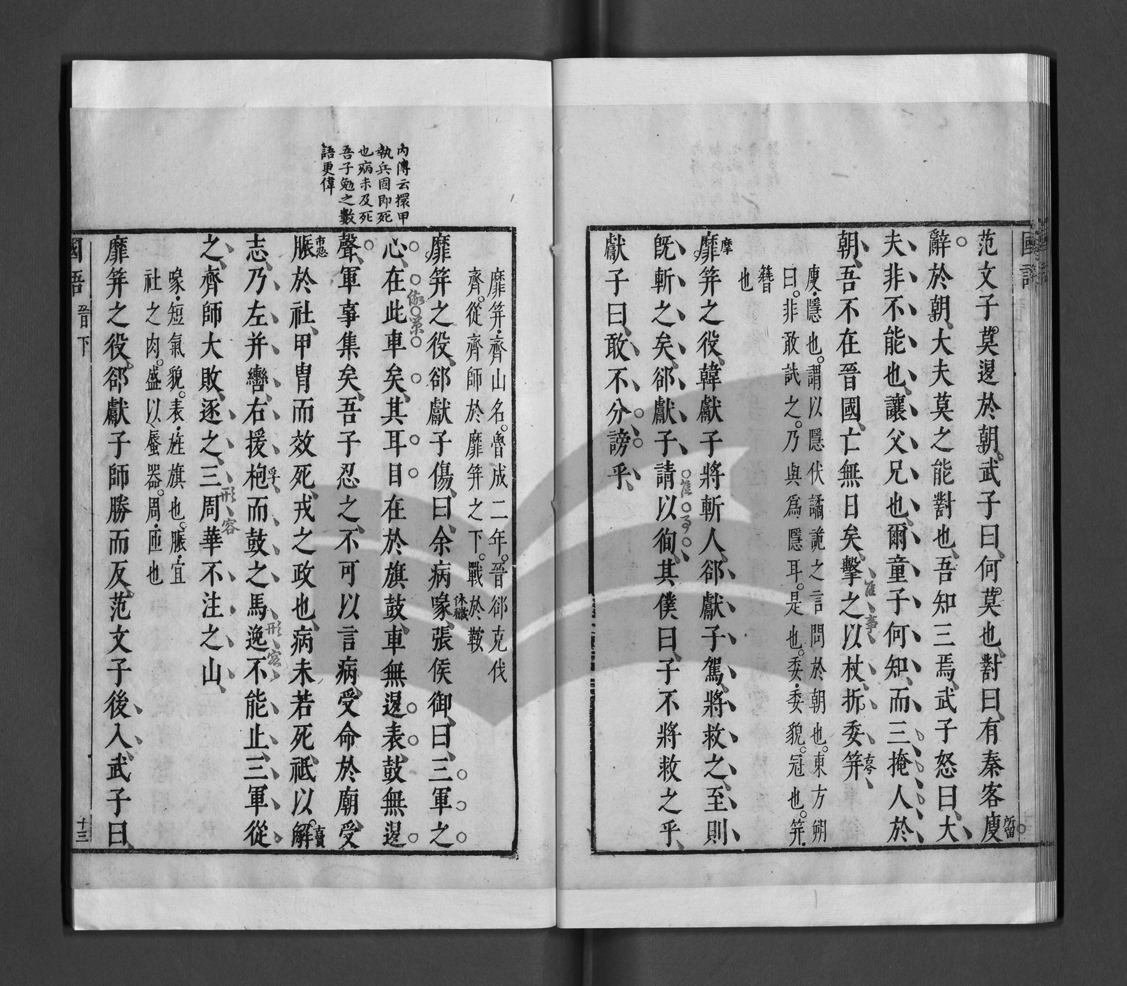 國語
范文子莫退於朝武子曰何莫也對曰有秦客廋
所留
辭於朝大夫莫之能對也吾知三焉武子怒曰大
夫非不能也讓父兄也爾童子何知而三掩人於
朝吾不在晉國亡無日矣擊之以杖折委笄
廋隱也謂以隱伏譎詭之言問於朝也東方朔
曰非敢詆之乃與為隱耳是也委委貌冠也笄
簪也
靡笄之役韓獻子將斬人郤獻子駕將救之至則
摩
既斬之矣郤獻子請以徇其僕曰子不將救之乎
獻子曰敢不分謗乎
內傳云擐甲
執兵固即死
也病未及死
吾子勉之數
語更偉
靡笄齊山名魯成二年晉郤克伐
齊從齊師於靡笄之下戰於鞍
靡笄之役郤獻子傷曰余病喙張侯御曰三軍之
休穢
心在此車矣其耳目在於旗鼓車無退表鼓無退
聲軍事集焉吾子忍之不可以言病受命於廟受
脤於社甲冑而效死戎之政也病未若死祗以解
市忍
志乃左并轡右援枹而鼓之馬逸不能止三軍從
孚
之齊師大敗逐之三周華不注之山
形容
喙短氣貌表旌旗也脤宜
社之肉盛以蜃器周匝也
靡笄之役郤獻子師勝而反范文子後入武子曰
國語 晉下
十三